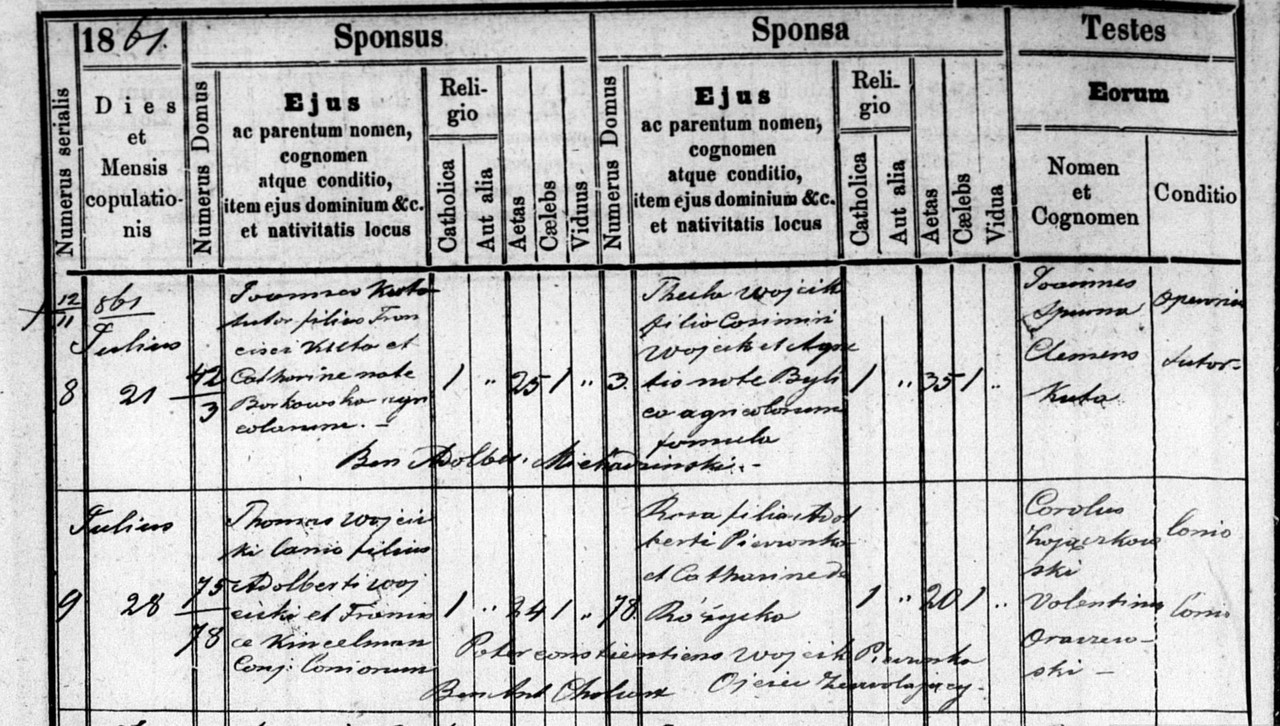 1861.
Sponsus
Sponsa
Testes
Numerus serialis
Dies
et
Mensis
copulatio-
nis
Numerus Domus
Ejus
ac parentum nomen,
cognomen
atque conditio,
item ejus dominium &c.
et nativitatis locus
Reli-
gio
Catholica
Aut alia
Aetas
Cælebs
Viduus
Numerus Domus
Ejus
ac parentum nomen,
cognomen
atque conditio,
item ejus dominium &c.
et nativitatis locus
Reli-
gio
Catholica
Aut alia
Aetas
Cælebs
Vidua
Eorum
Nomen
et
Cognomen
Conditio
12
11
861
Julius
8
21
42
3
Joannes Kuta
sutor filius Fran
cisci Kuta et
Catharine nate
Borkowska agri
colarum. -
1
"
25
1
"
3.
Thecla Wojcik
filia Casimiri
Wojcik et Agne
tis note Byli
ca agricolarum
famula
1
"
35
1
"
Joannes
Clemens
Kuta
sutor-
Ben Adalber.
Julius
9
28
75
78
Thomas Wojcic
ki lanio filius
Adalberti Woj
cicki et Francis
ce Kincelman
Conj: Lanionum
1
"
24
1
"
78.
Rosa filia Adal
berti Pieronka
et Catharine de
Różycka
1
"
20
1
"
Carolus
ski
Valentinus
ski -
Lanio
Lanio
Pater consentiens Wojcik Pieronka
Ojciec zezwalający.
Ben Ant